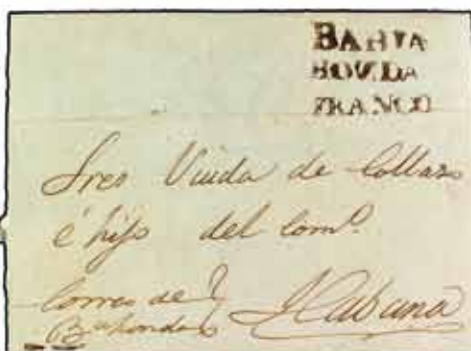 BAHIA
HONDA
FRANCO
Sres Viuda de Collazo
é hijo del comº.
Correo de
Bª honda
Habana